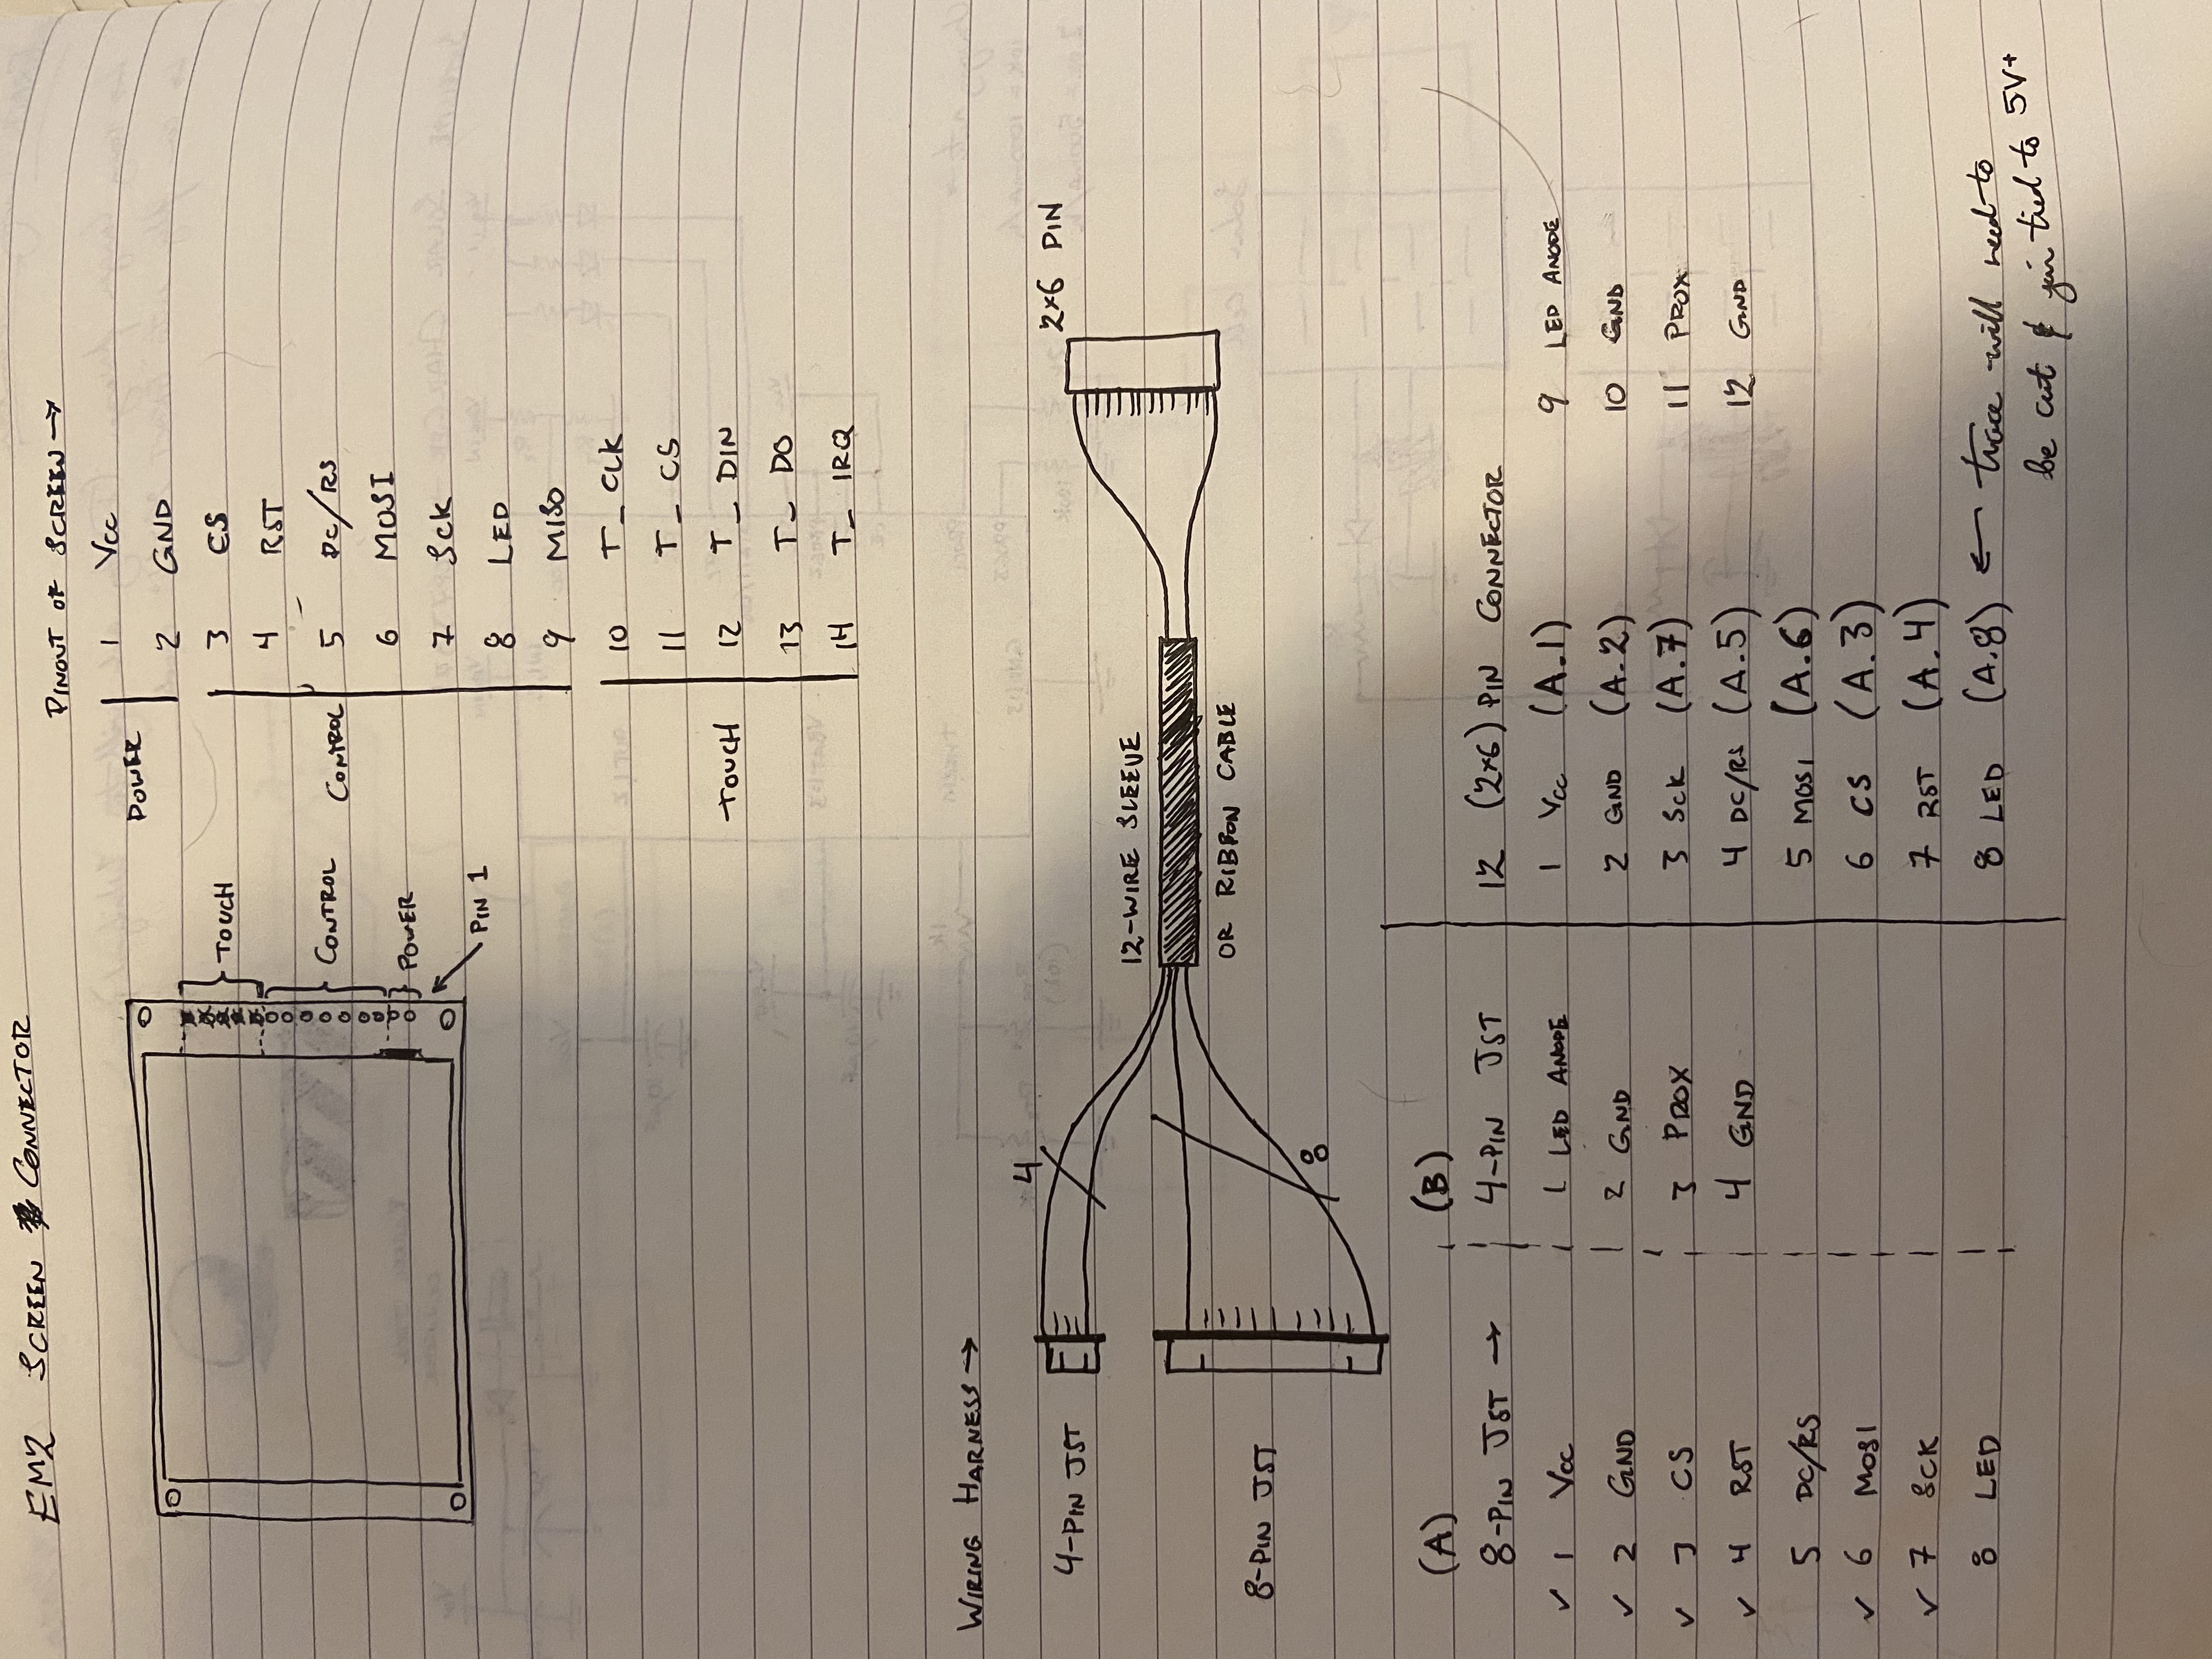 EM2 SCREEN CONNECTOR
PINOUT OF SCREEN →
POWER
1 VCC
2 GND
CONTROL
3 CS
4 RST
5 DC/RS
6 MOSI
7 SCK
8 LED
9 MISO
TOUCH
10 T_ CLK
11 T_ CS
12 T_ DIN
13 T_ DO
14 T_ IRQ
TOUCH
CONTROL
POWER
PIN 1
WIRING HARNESS →
4-PIN JST
4
12-WIRE SLEEVE
OR RIBBON CABLE
2×6 PIN
8-PIN JST
8
(A)
8-PIN JST →
✓ 1 VCC
✓ 2 GND
✓ 3 CS
✓ 4 RST
5 DC/RS
✓ 6 MOSI
✓ 7 SCK
8 LED
(B)
4-PIN JST
1 LED ANODE
2 GND
3 PROX
4 GND
12 (2×6) PIN CONNECTOR
1 VCC (A.1)
2 GND (A.2)
3 SCK (A.7)
4 DC/RS (A.5)
5 MOSI (A.6)
6 CS (A.3)
7 RST (A.4)
8 LED (A.8) ← trace will need to
be cut & pin tied to 5V+
9 LED ANODE
10 GND
11 PROX
12 GND